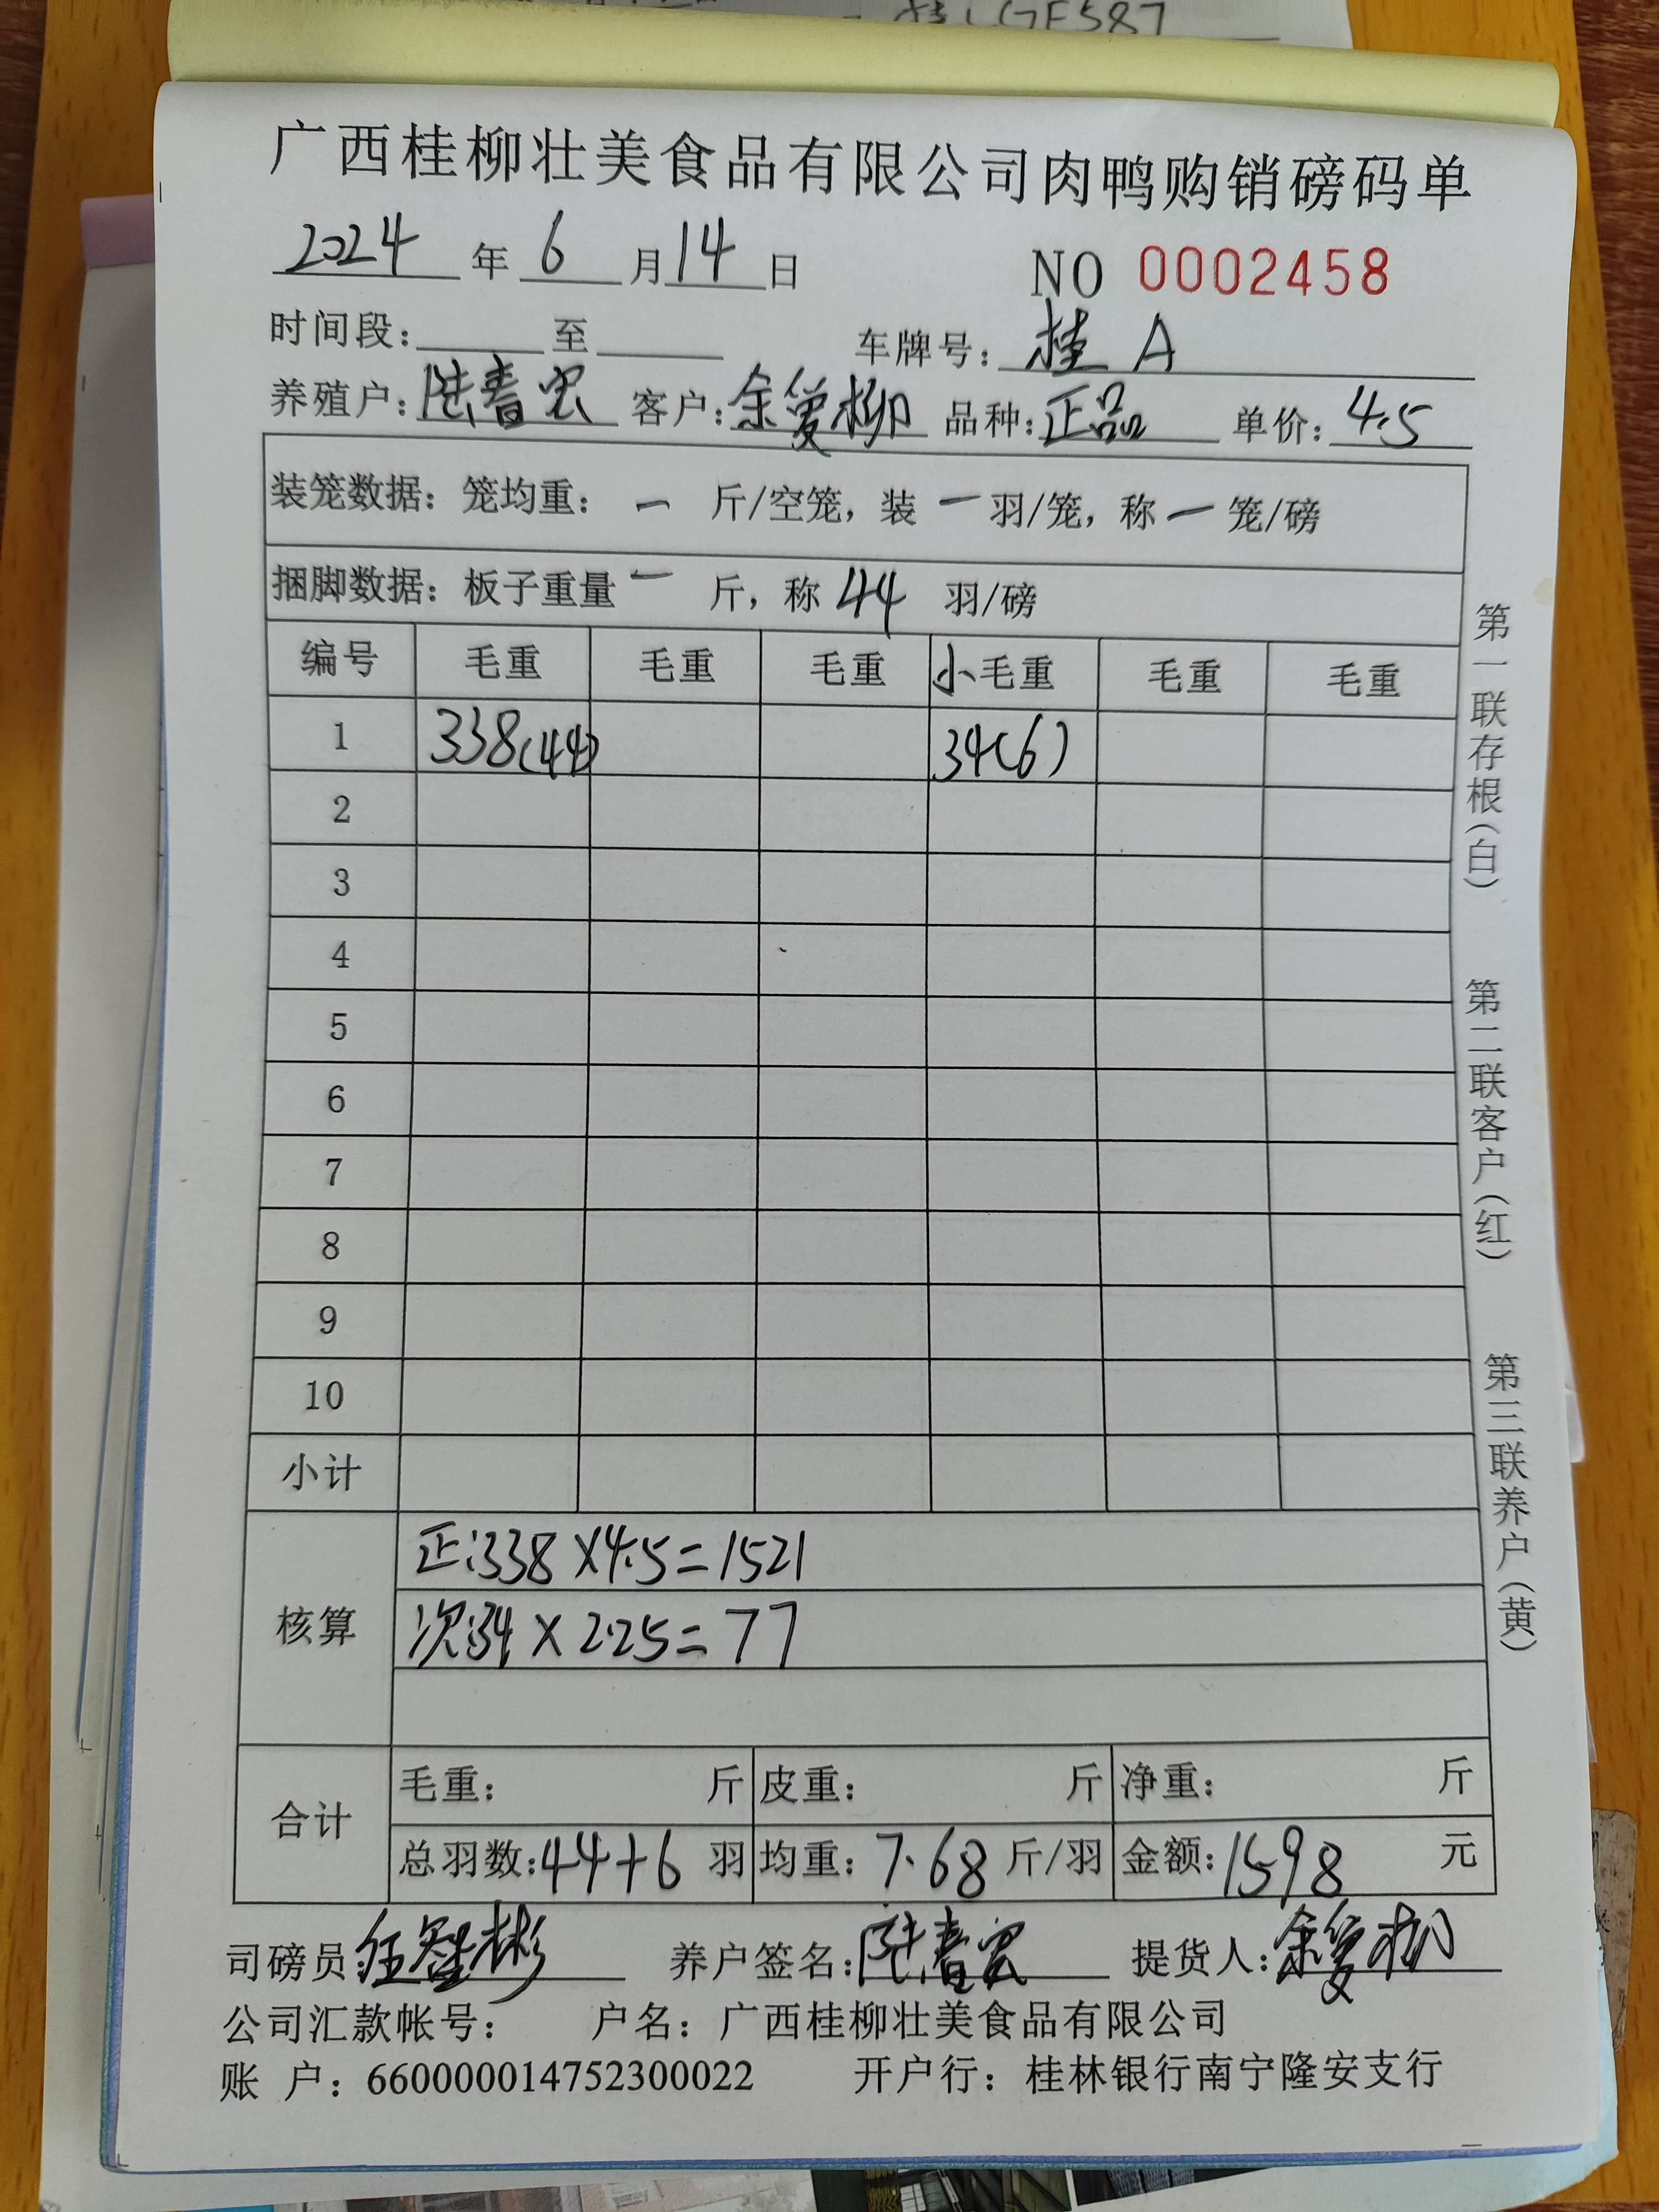 广西桂柳壮美食品有限公司肉鸭购销磅码单
2024 年 6 月 14 日 NO 0002458
时间段: 至 车牌号: 桂 A
养殖户: 陆春宏 客户: 余爱柳 品种: 正品 单价: 4.5
装笼数据: 笼均重: 一 斤/空笼, 装 一 羽/笼, 称 一 笼/磅
捆脚数据: 板子重量 一 斤, 称 44 羽/磅
编号 毛重 毛重 毛重 小毛重 毛重 毛重
1 338(44) 34(6)
2
3
4
5
6
7
8
9
10
小计
核算 正:338×4.5=1521
次:34×2.25=77
合计 毛重: 斤 皮重: 斤 净重: 斤
总羽数: 44+6 羽 均重: 7.68 斤/羽 金额: 1598 元
司磅员: 任智彬 养户签名: 陆春宏 提货人: 余爱柳
公司汇款帐号: 户名: 广西桂柳壮美食品有限公司
账 户: 660000014752300022 开户行: 桂林银行南宁隆安支行
第一联存根(白)
第二联客户(红)
第三联养户(黄)